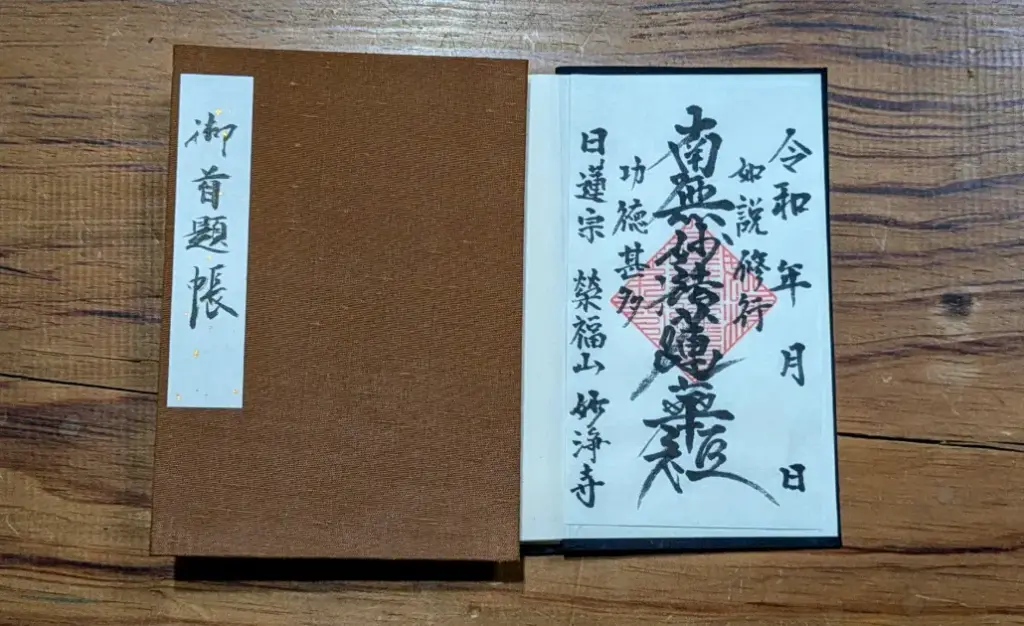 御首題帳
令和 年 月 日
如説修行
南無妙法蓮華經
功徳甚多
日蓮宗 榮福山 妙浄寺